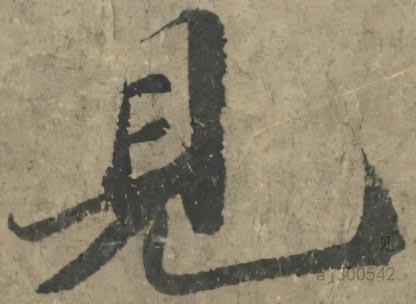 見
见
aj300542